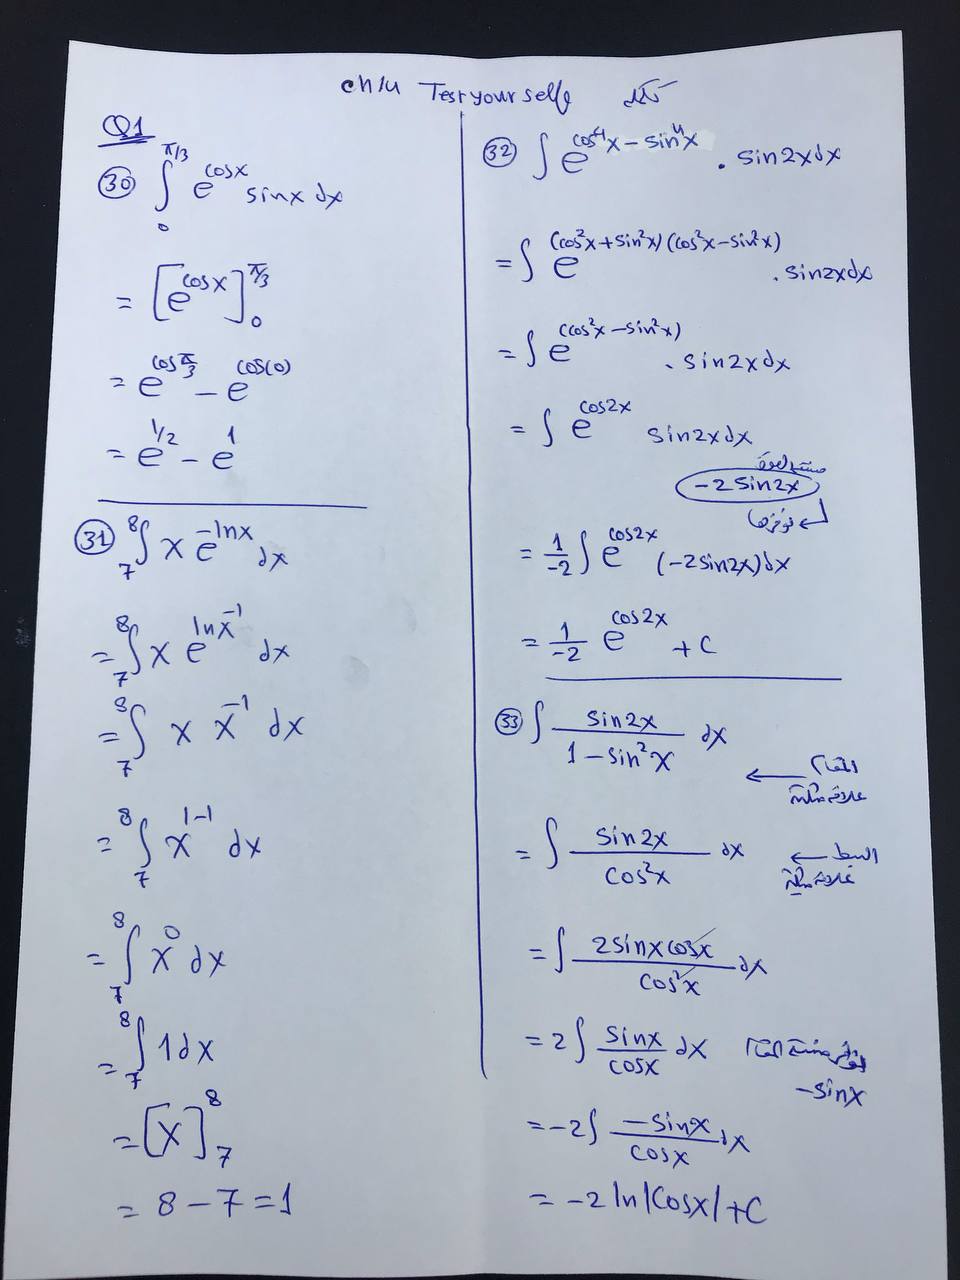 ch/4 Test yourselfe
Q1
30 ∫_0^{π/3} e^{cosx} sinx dx
= [e^{cosx}]_0^{π/3}
= e^{cos π/3} - e^{cos(0)}
= e^{1/2} - e^1
31 ∫_7^8 x e^{-lnx} dx
= ∫_7^8 x e^{lnx^{-1}} dx
= ∫_7^8 x x^{-1} dx
= ∫_7^8 x^{1-1} dx
= ∫_7^8 x^0 dx
= ∫_7^8 1dx
= [x]_7^8
= 8 - 7 = 1
32 ∫ e^{cos^4x - sin^4x} . sin2xdx
= ∫ e^{(cos^2x + sin^2x)(cos^2x - sin^2x)} . sin2xdx
= ∫ e^{(cos^2x - sin^2x)} . sin2xdx
= ∫ e^{cos2x} sin2xdx
مشتقة القوة
-2sin2x
نوفرها
= 1/-2 ∫ e^{cos2x} (-2sin2x)dx
= 1/-2 e^{cos2x} + c
33 ∫ sin2x / (1 - sin^2x) dx
المقام ←
علاقة مثلثية
= ∫ sin2x / cos^2x dx
البسط ←
علاقة مثلثية
= ∫ 2sinxcosx / cos^2x dx
= 2∫ sinx / cosx dx
مشتقة المقام
-sinx
= -2∫ -sinx / cosx dx
= -2 ln|cosx| + c